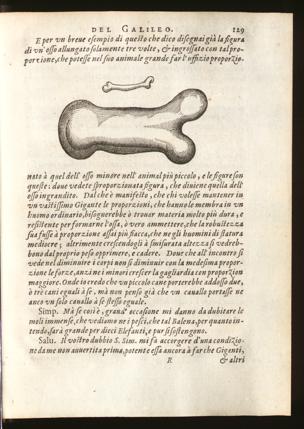 DEL GALILEO. 129
E per vn breue esempio di questo che dico disegnai già la figura
di vn'osso allungato solamente tre volte, & ingrossato con tal pro-
porzione, che potesse nel suo animale grande far l'uffizio proporzio-
nato à quel dell'osso minore nell'animal più piccolo, e le figure son
queste: doue vedete sproporzionata figura, che diuiene quella dell'
osso ingrandito. Dal che è manifesto, che chi volesse mantener in
vn vastissimo Gigante le proporzioni, che hanno le membra in vn
huomo ordinario, bisognerebbe ò trouar materia molto più dura, e
resistente per formarne l'ossa, ò vero ammettere, che la robustezza
sua fusse à proporzione assai più fiacca, che ne gli huomini di statura
mediocre; altrimente crescendogli à smisurata altezza si vedreb-
bono dal proprio peso opprimere, e cadere. Doue che all'incontro si
vede nel diminuire i corpi non si diminuir con la medesima propor-
zione le forze, anzi ne i minori crescer la gagliardia con proporzion
maggiore. Onde io credo che vn piccolo cane porterebbe addosso due,
ò trè cani eguali à se, mà non penso già che vn cauallo portasse nè
anco vn solo cauallo à se stesso eguale.
Simp. Mà se così è, grand'occasione mi danno da dubitare le
moli immense, che vediamo ne i pesci, che tal Balena, per quanto in-
tendo, sarà grande per dieci Elefanti, e pur si sostengono.
Salu. Il vostro dubbio S. Sim. mi fà accorgere d'una condizio-
ne da me non auuertita prima, potente essa ancora à far che Giganti,
R & altri